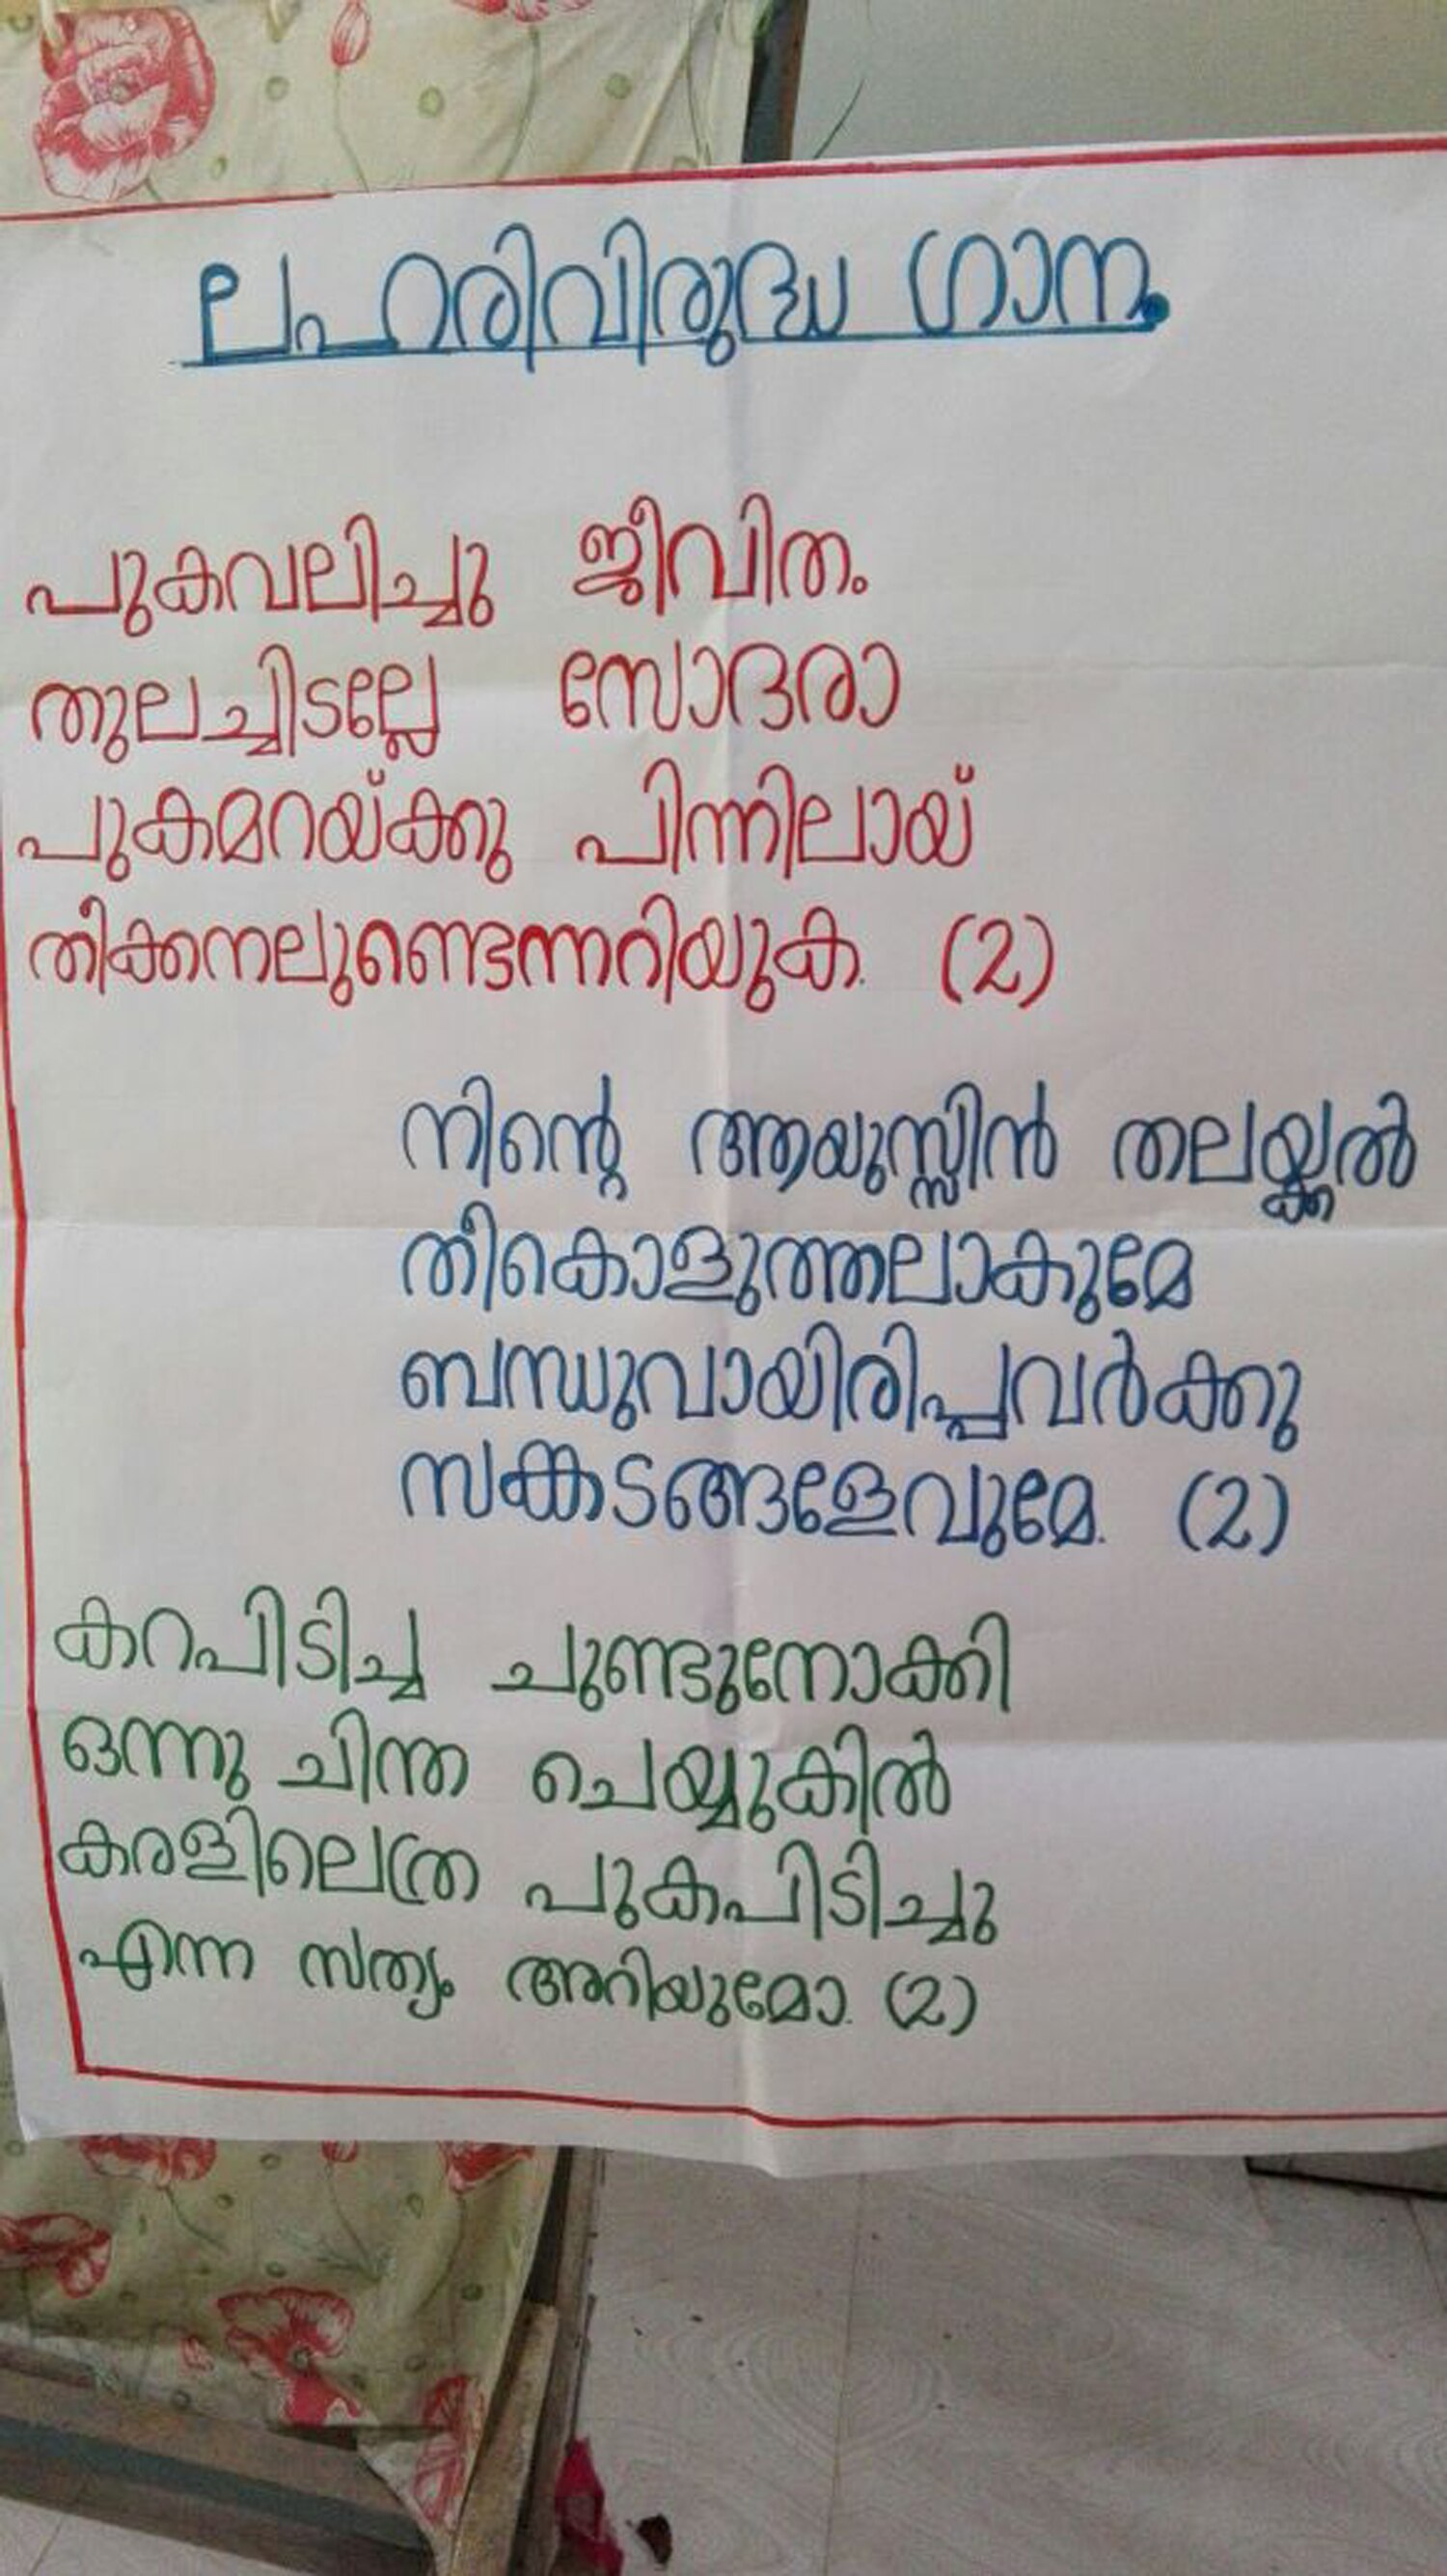 ലഹരിവിരുദ്ധ ഗാനം
പുകവലിച്ചു ജീവിതം
തുലച്ചിടല്ലേ സോദരാ
പുകമറയ്ക്കു പിന്നിലായ്
തീക്കനലുണ്ടെന്നറിയുക. (2)
നിന്റെ ആയുസ്സിൻ തലയ്ക്കൽ
തീകൊളുത്തലാകുമേ
ബന്ധുവായിരിപ്പവർക്കു
സങ്കടങ്ങളേവുമേ. (2)
കറപിടിച്ച ചുണ്ടുനോക്കി
ഒന്നു ചിന്ത ചെയ്യുകിൽ
കരളിലെത്ര പുകപിടിച്ചു
എന്ന സത്യം അറിയുമോ. (2)